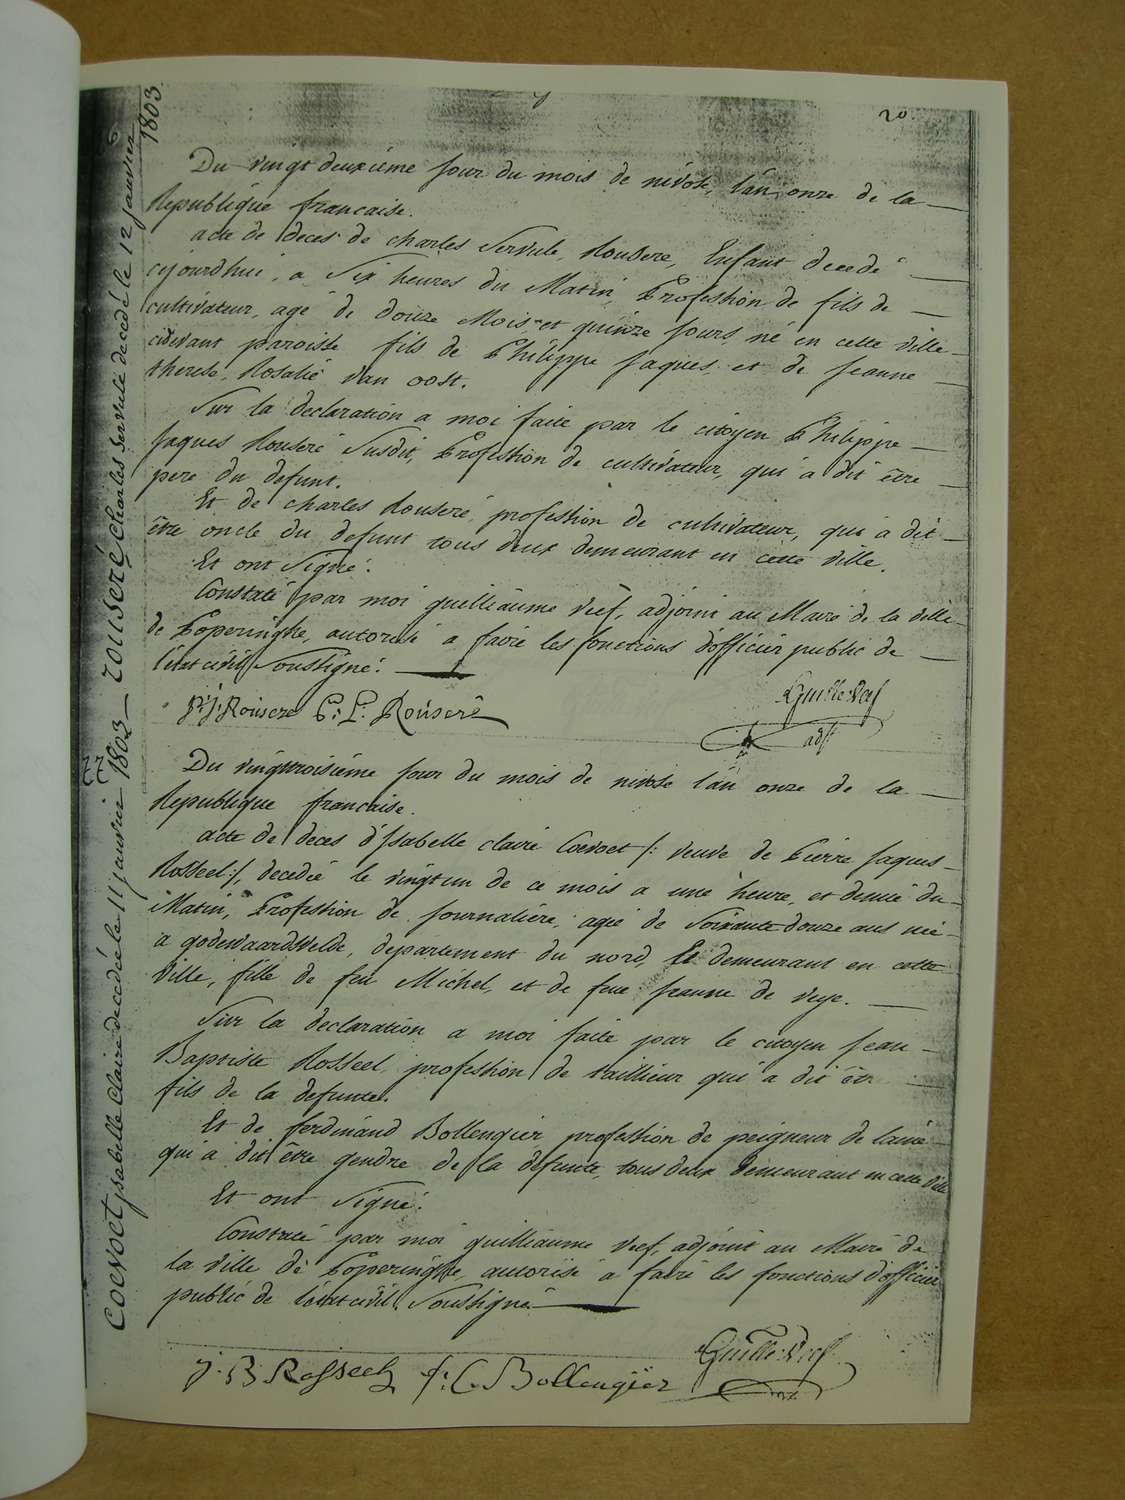 20.
Du vingt deuxiéme jour du mois de nivose, l'an onze de la
Republique francaise.
acte de deces de charles Servule Rouseré, Enfant decedé
cejourdhui, a Six heures du Matin, Profession de fils de
cultivateur, agé de douze Mois et quinze jours, né en cette ville
cidevant paroisse fils de Philippe Jaques, et de Jeanne
therese, Rosalie van oost.
Sur la declaration a moi faite par le citoyen Philippe
Jaques Rouseré Susdit, Profession de cultivateur, qui a dit être
pere du defunt.
Et de charles Rouseré, profession de cultivateur, qui a dit
être oncle du defunt tous deux demeurant en cette ville.
Et ont Signé.
Constaté par moi guilliaume Vief, adjoint au Maire de la ville
de Poperinghe, autorisé a faire les fonctions d'officier public de
l'etat civil Soussigné.
P: J: Rouseré C: L: Rouseré
Guille: Vief
adjt
Du vingttroisiéme jour du mois de nivose l'an onze de la
Republique francaise.
acte de deces d'Isabelle claire Coevoet /: veuve de Pierre Jaques
Rosseel :/, decedée le vingt un de ce mois a une heure, et demie du
Matin, Profession de journaliére, agée de Soixante douze ans née
a godewaardsvelde, departement du nord, Et demeurant en cette
ville, fille de feu Michel, et de feue jeanne de veye.
Sur la declaration a moi faite par le citoyen Jean
Baptiste Rosseel, profession de taillieur qui a dit être
fils de la defunte.
Et de ferdinand Bollengier, profession de peigneur de laine
qui a dit être gendre de la defunte, tous deux demeurant en cette ville
Et ont Signé.
Constaté par moi guilliaume Vief, adjoint au Maire de
la ville de Poperinghe, autorisé a faire les fonctions d'officier
public de l'etat civil Soussigné.
J: B Rosseel f: C: Bollengier
Guille: Vief
COEVOET Isabelle Claire decedée le 11 janvier 1803 — ROUSERÉ Charles Servule decedé le 12 janvier
1803